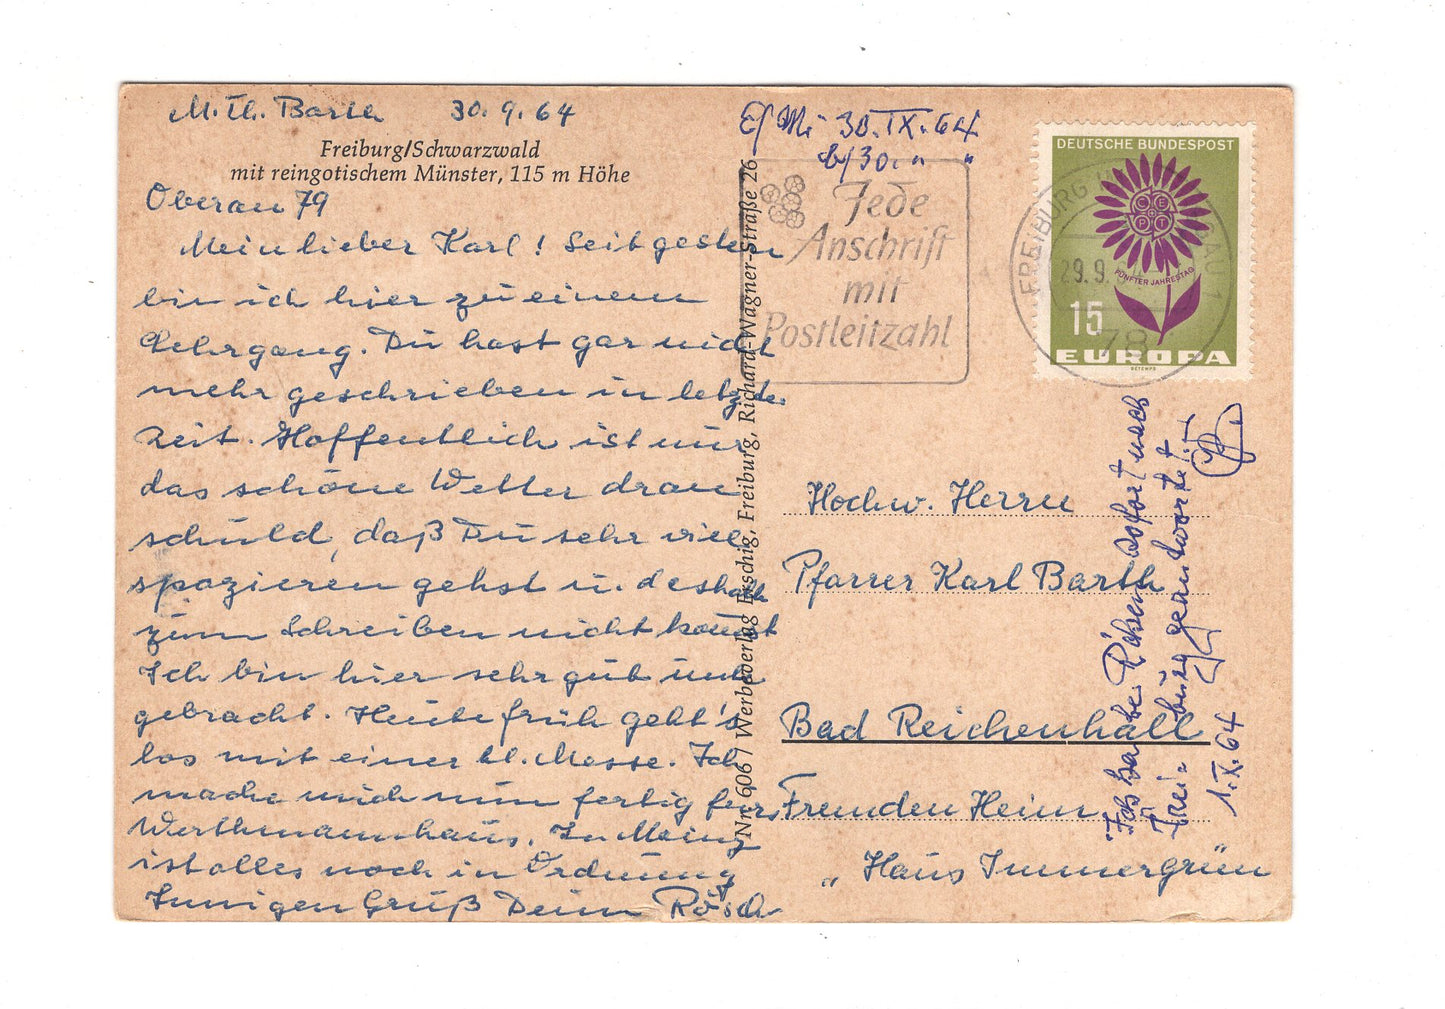 M. Th. Barth 30.9.64
Freiburg/Schwarzwald
mit reingotischem Münster, 115 m Höhe
Oberau 79
Mein lieber Karl! Seit gestern
bin ich hier zu einem
Lehrgang. Du hast gar nicht
mehr geschrieben in letzter
Zeit. Hoffentlich ist nur
das schöne Wetter dran
schuld, daß Du sehr viel
spazieren gehst u. deshalb
zum Schreiben nicht kommst
Ich bin hier sehr gut unter
gebracht. Heute früh geht's
los mit einer hl. Messe. Ich
mache mich nun fertig fürs
Werthmannhaus. In Mainz
ist alles noch in Ordnung
Innigen Gruß Dein Rösch.
Nr. 606 / Werbeverlag Erschig, Freiburg, Richard-Wagner-Straße 26
30.IX.64
b/30. " "
Jede
Anschrift
mit
Postleitzahl
FREIBURG
29.9.
78
DEUTSCHE BUNDESPOST
CEPT
FÜNFTER JAHRESTAG
15
EUROPA
Hochw. Herrn
Pfarrer Karl Barth
Bad Reichenhall
Fremden Heim
"Haus Immergrün
sofort nach
geantwortet
1.X.64